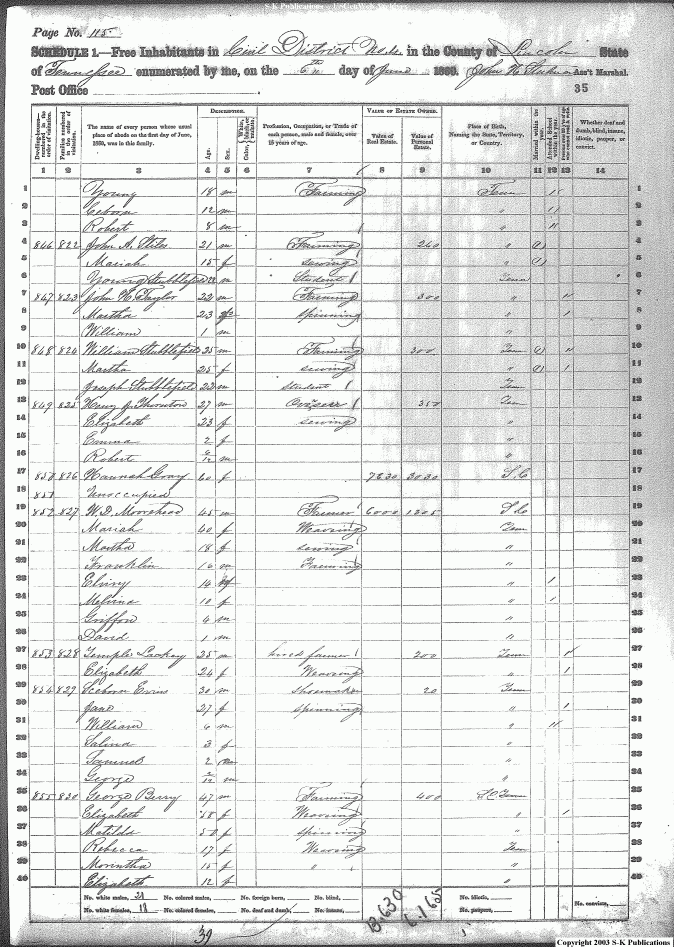 S-K Publications
Page No. 115
SCHEDULE 1.—Free Inhabitants in Civil District No. in the County of Lincoln State
of Tennessee enumerated by me, on the 6th day of June 1860. John Ass't Marshal.
Post Office
35
DESCRIPTION. VALUE OF ESTATE OWNED.
Dwelling-houses—numbered in the order of visitation. Families numbered in the order of visitation. The name of every person whose usual place of abode on the first day of June, 1860, was in this family. Age. Sex. Color, Profession, Occupation, or Trade of each person, male and female, over 15 years of age. Value of Real Estate. Value of Personal Estate. Place of Birth, Naming the State, Territory, or Country. Married within the year. Attended School within the year. Whether deaf and dumb, blind, insane, idiotic, pauper, or convict.
1 2 3 4 5 6 7 8 9 10 11 12 13 14
1 Young 18 m Farming Tenn 1
2 12 m " 2
3 Robert 8 m " 3
4 846 822 John A. Stiles 21 m Farming 240 " 4
5 Mariah 15 f sewing " 5
6 Young Stubblefield 22 m Student Tenn 6
7 847 823 John W. Taylor 22 m Farming 300 " 7
8 Martha 23 f spinning " 8
9 William 1 m " 9
10 848 824 William Stubblefield 25 m Farming 300 Tenn 10
11 Martha 25 f sewing " 11
12 Joseph Stubblefield 22 m student Tenn 12
13 849 825 Henry J. Thornton 27 m Overseer 350 Tenn 13
14 Elizabeth 23 f sewing " 14
15 Emma 2 f " 15
16 Robert m " 16
17 850 826 Hannah Gray 60 f 7630 3030 S.C 17
18 851 Unoccupied 18
19 852 827 W.D. Moorehead 45 m Farmer 6000 1205 S.C 19
20 Mariah 40 f Weaving Tenn 20
21 Martha 18 f sewing " 21
22 Franklin 16 m Farming " 22
23 Elviry 14 f " 23
24 Melvina 10 f " 24
25 Griffon 4 m " 25
26 David 1 m " 26
27 853 828 Temple Lackey 25 m hired farmer 200 Tenn 27
28 Elizabeth 24 f Weaving " 28
29 854 829 Seeborn Evins 30 m shoemaker 20 Tenn 29
30 Jane 27 f spinning " 30
31 William 6 m " 31
32 Salina 3 f " 32
33 Samuel 2 m " 33
34 George m " 34
35 855 830 George Berry 47 m Farming 400 S.C Tenn 35
36 Elizabeth 58 f Weaving " 36
37 Matilda 50 f spinning " 37
38 Rebecca 17 f Weaving Tenn 38
39 Morintha 15 f " " 39
40 Elizabeth 12 f 40
No. white males, 21 No. colored males, No. foreign born, No. blind, No. idiotic,
No. white females, 18 No. colored females, No. deaf and dumb, No. insane, No. paupers, No. convicts,
39
13,630
6,165
Copyright 2003 S-K Publications